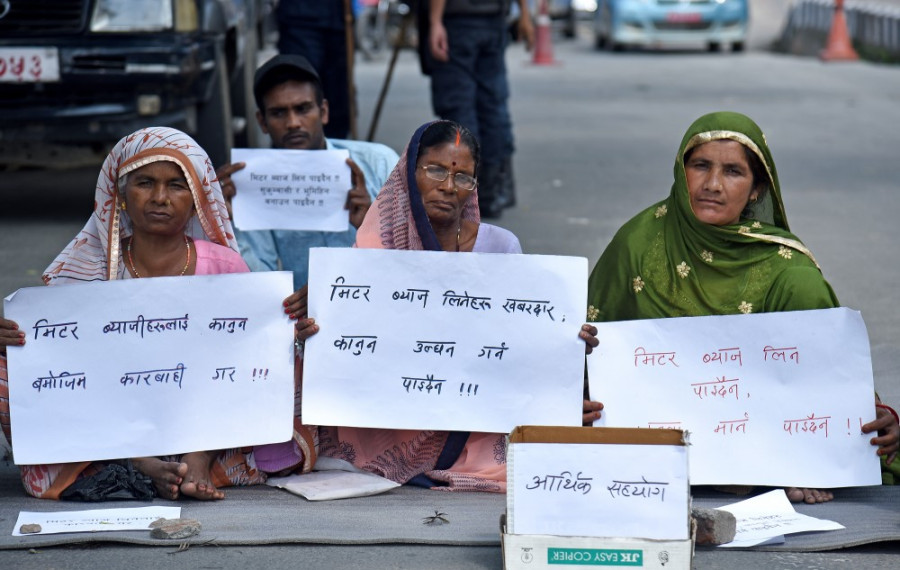 ०५३
मिटर ब्याज लिन पाईदैन !!
सुकुम्बासी र भुमिहिन
बनाउन पाईदैन !!
मिटर ब्याजीहरूलाई कानुन
बमोजिम कारबाही गर !!!
मिटर ब्याज लिनेहरू खबरदार,
कानुन उल्घन गर्न
पाइदैन !!!
मिटर ब्याज लिन
पाइदैन,
मार्न पाइदैन !!
आर्थिक सहयोग
JK EASY COPIER
मिटर ब्याज